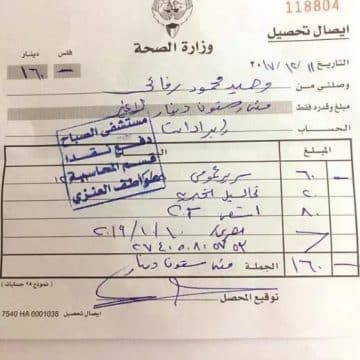 118804
ايصال تحصيل
وزارة الصحة
فلس دينار
— ١٦٠
التاريخ ١١ / ١٢ / ٢٠١٧
وصلني من وحيد محمود رفاعي
مبلغ وقدره فقط مئة وستون دينار لاغير
الحساب إيرادات
مستشفى الصباح
دفع نقدا
قسم المحاسبة
عواطف العنزي
المبلغ
— ٦٠ سرير عمومي
٢٠
٨٠
٢٠١٩/١/١٠
— ١٦٠ الجملة مئة ستون دينار
توقيع المحصل
(نموذج ٢٥ حسابات)
ايصال تحصيل 7540 HA 6001038